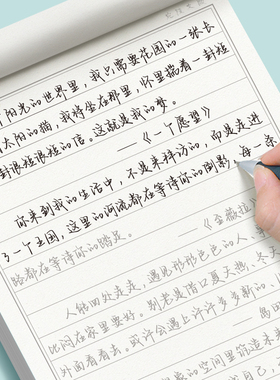 阳光的世界里，我只需要花园的一张长
太阳的猫，我将坐在那里，怀里揣着一封短
封很短很短的信。这就是我的梦。
——《一个愿望》
你来到我的生活中，不是来拜访的，而是走进
了一个王国，这里的河流都在等待你的倒影，每一条
路都在等待你的踏足。
——《金薇拉
人能四处走走，遇见形形色色的人，
比闷在家里要好。别老是借口夏天热、冬天
外面看看去。或许会遇上许许多多新的、
的空间里筑造未